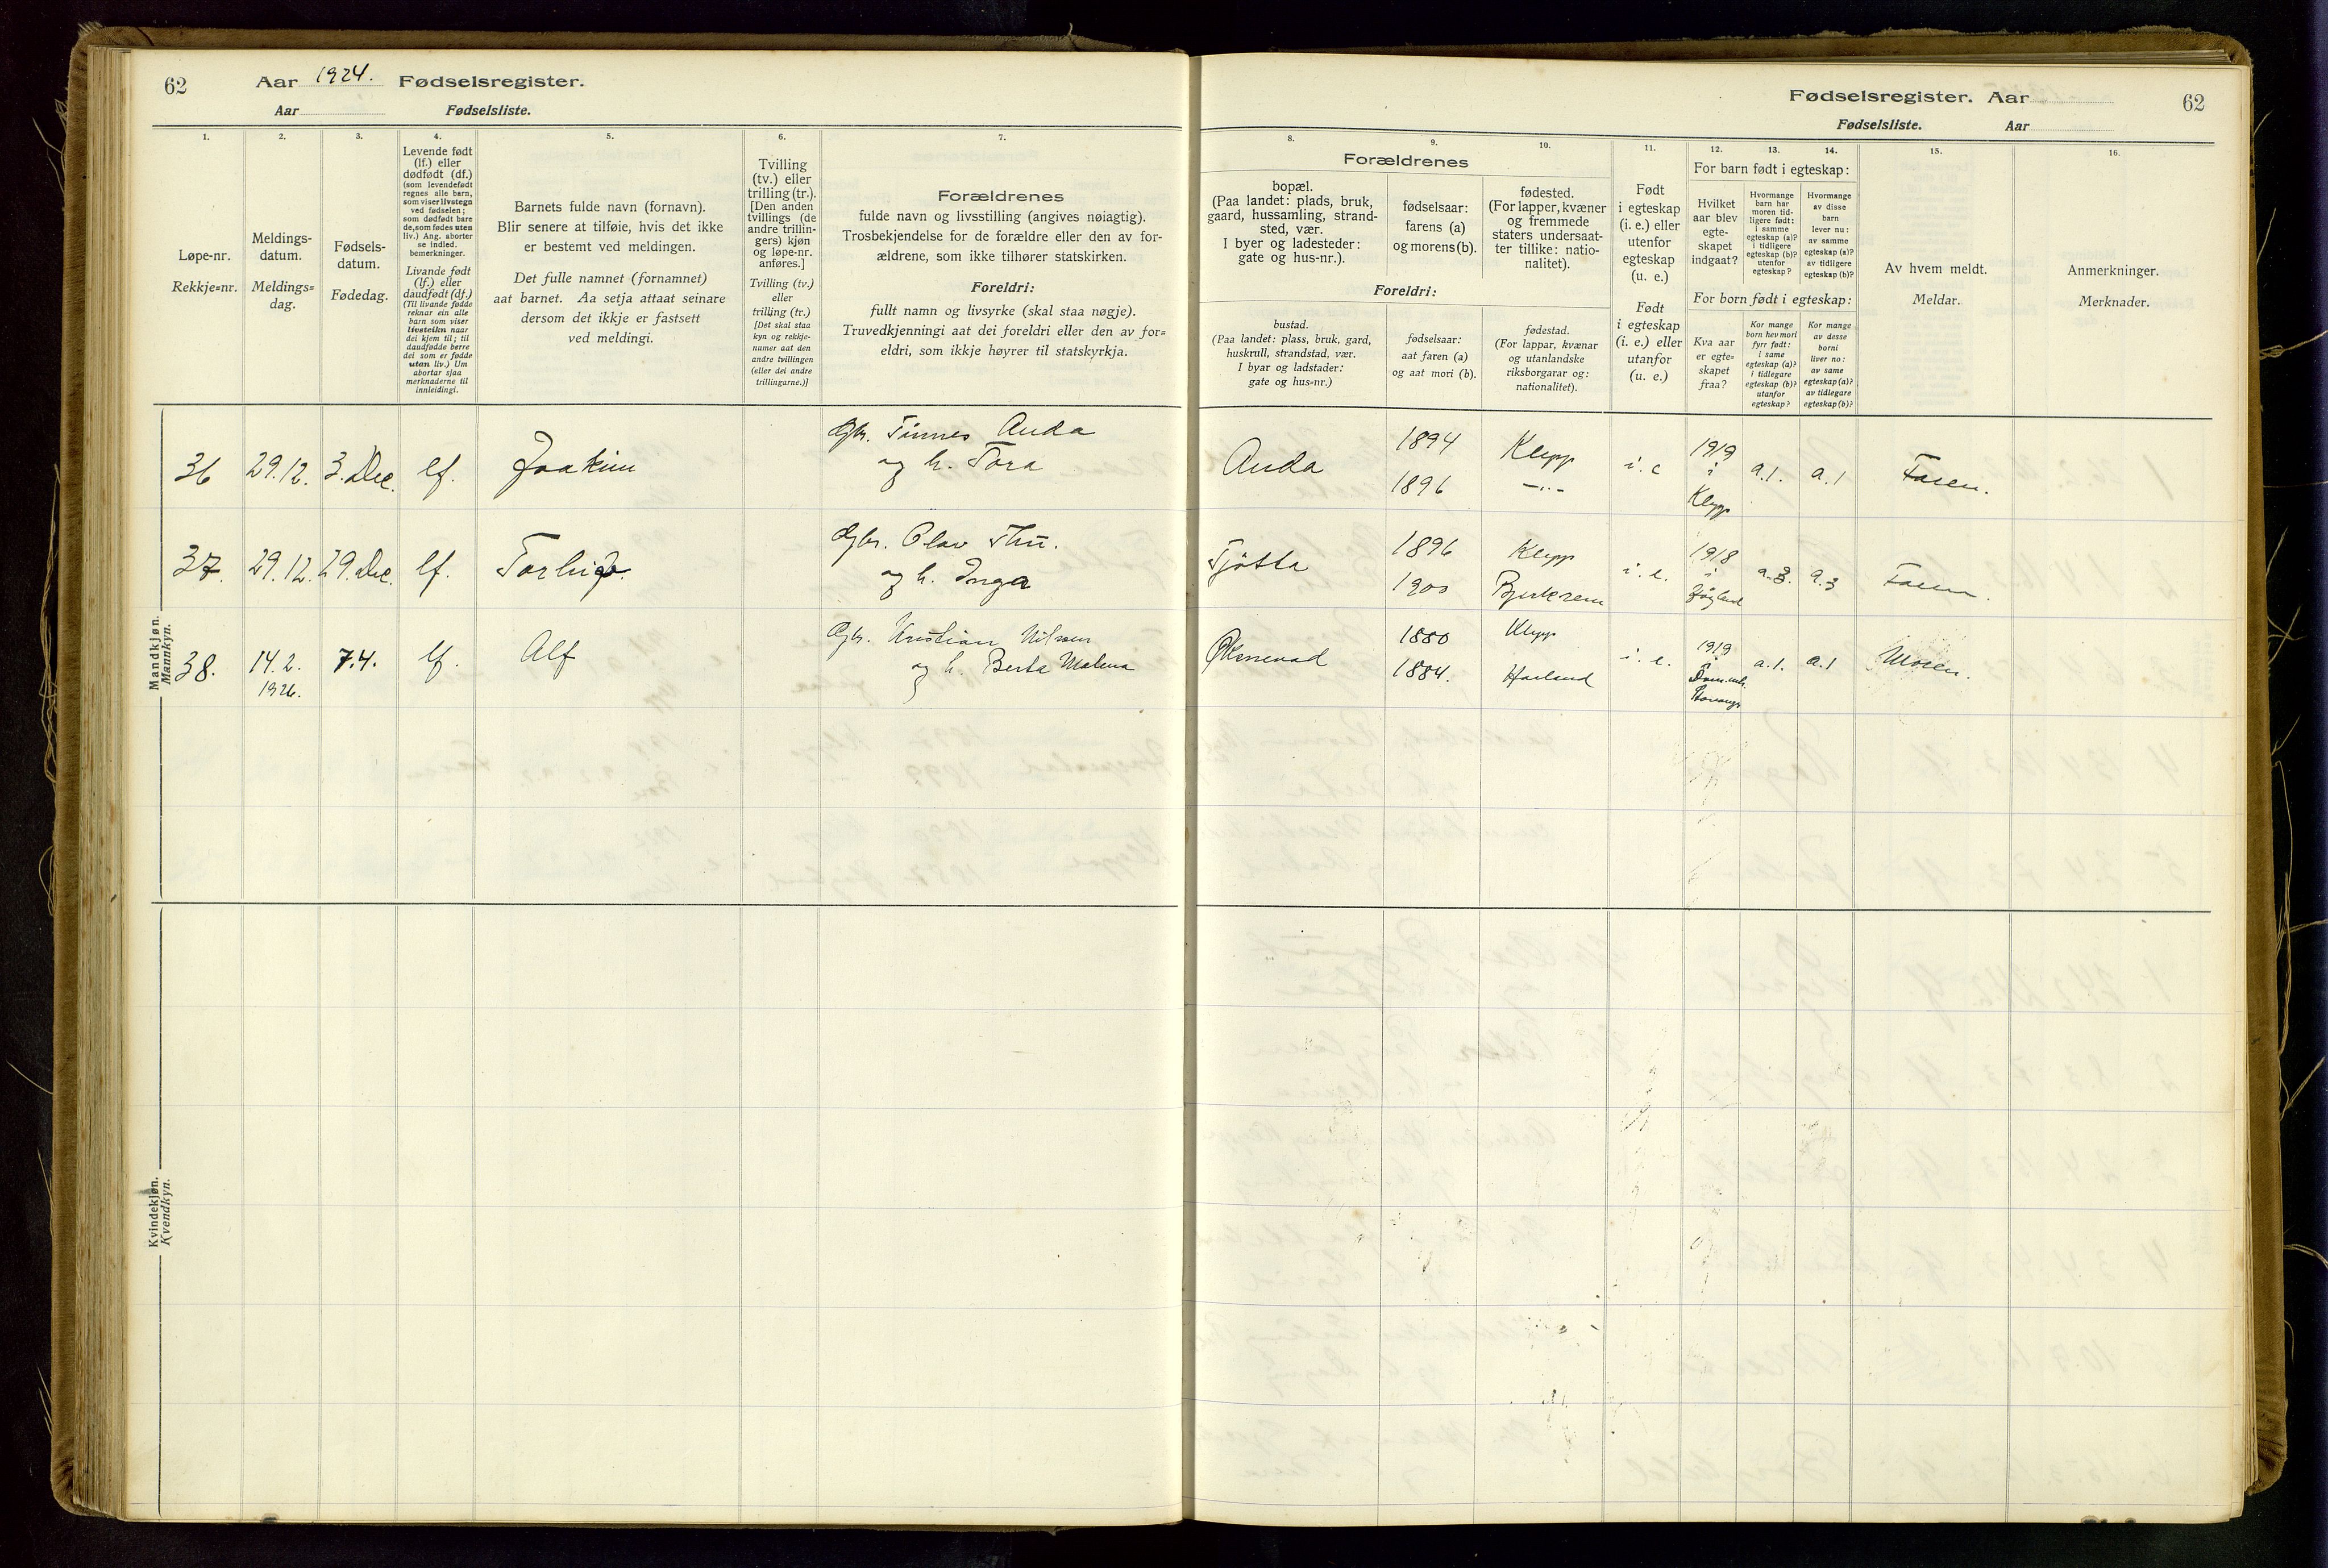 62
Aar 1924. Fødselsregister.
Aar Fødselsliste.
1.
Løpe-nr.
Rekkje=nr.
2.
Meldings-
datum.
Meldings=
dag.
3.
Fødsels-
datum.
Fødedag.
4.
Levende født
(lf.) eller
dødfødt (df.)
(som levendefødt
regnes alle barn,
som viser livstegn
ved fødselen;
som dødfødt bare
de, som fødes uten
liv.) Ang. aborter
se indled.
bemerkninger.
Livande født
(lf.) eller
daudfødt (df.)
(Til livande fødde
reknar ein alle
barn som viser
livsteikn naar
dei kjem til; til
daudfødde berre
dei som er fødde
utan liv.) Um
abortar sjaa
merknaderne til
innleidingi.
5.
Barnets fulde navn (fornavn).
Blir senere at tilføie, hvis det ikke
er bestemt ved meldingen.
Det fulle namnet (fornamnet)
aat barnet. Aa setja attaat seinare
dersom det ikkje er fastsett
ved meldingi.
6.
Tvilling
(tv.) eller
trilling (tr.).
[Den anden
tvillings (de
andre trillin-
gers) kjøn
og løpe-nr.
anføres.]
Tvilling (tv.)
eller
trilling (tr.)
[Det skal staa
kyn og rekkje-
numer aat den
andre tvillingen
(eller dei andre
trillingarne.)]
7.
Forældrenes
fulde navn og livsstilling (angives nøiagtig).
Trosbekjendelse for de forældre eller den av for-
ældrene, som ikke tilhører statskirken.
Foreldri:
fullt namn og livsyrke (skal staa nøgje).
Truvedkjenningi aat dei foreldri eller den av for=
eldri, som ikkje høyrer til statskyrkja.
Mandkjøn.
Mannkyn.
36 29.12. 3. Dec. lf. Joakim Gbr. Tønnes Anda
og h. Tora
37. 29.12. 29. Dec. lf. Gbr. Olav Thu.
og h. Inga
38. 14.2. 7.4. lf. Alf Gbr. Kristian Nilssen
1926. og h. Berta Malena
Kvindekjøn.
Kvendkyn.
Fødselsregister. Aar
62
Fødselsliste. Aar
8.
Forældrenes
bopæl.
(Paa landet: plads, bruk,
gaard, hussamling, strand-
sted, vær.
I byer og ladesteder:
gate og hus-nr.).
Foreldri:
bustad.
(Paa landet: plass, bruk, gard,
huskrull, strandstad, vær.
I byar og ladstader:
gate og hus=nr.)
9.
fødselsaar:
farens (a)
og morens (b).
fødselsaar:
aat faren (a)
og aat mori (b).
10.
fødested.
(For lapper, kvæner
og fremmede
staters undersaat-
ter tillike: natio-
nalitet).
fødestad.
(For lappar, kvænar
og utanlandske
riksborgarar og:
nationalitet).
11.
Født
i egteskap
(i. e.) eller
utenfor
egteskap
(u. e.)
Født
i egteskap
(i. e.) eller
utanfor
(u. e.)
12. 13. 14.
For barn født i egteskap:
Hvilket
aar blev
egte-
skapet
indgaat?
Hvormange
barn har
moren tid-
ligere født:
i samme
egteskap (a)?
i tidligere
egteskap (b)?
utenfor
egteskap?
Hvormange
av disse
barn
lever nu:
av samme
egteskap (a)?
av tidligere
egteskap (b)?
For born født i egteskap:
Kva aar
er egte=
skapet
fraa?
Kor mange
born hev mori
fyrr født:
i same
egteskap (a)?
i tidlegare
egteskap (b)?
utanfor
egteskap?
Kor mange
av desse
borni
liver no:
av same
egteskap (a)?
av tidlegare
egteskap (b)?
15.
Av hvem meldt.
Meldar.
16.
Anmerkninger.
Merknader.
Anda 1894 Klepp i. e 1919 a.1. a.1 Faren.
1896 -"- i
Klepp
Tjøtta 1896 Klepp i. e. 1918 a.3. a.3 Faren.
1900 Bjerkreim i
Øksnevad 1880 Klepp i. e. 1919 a.1. a.1 Moren.
1884. i